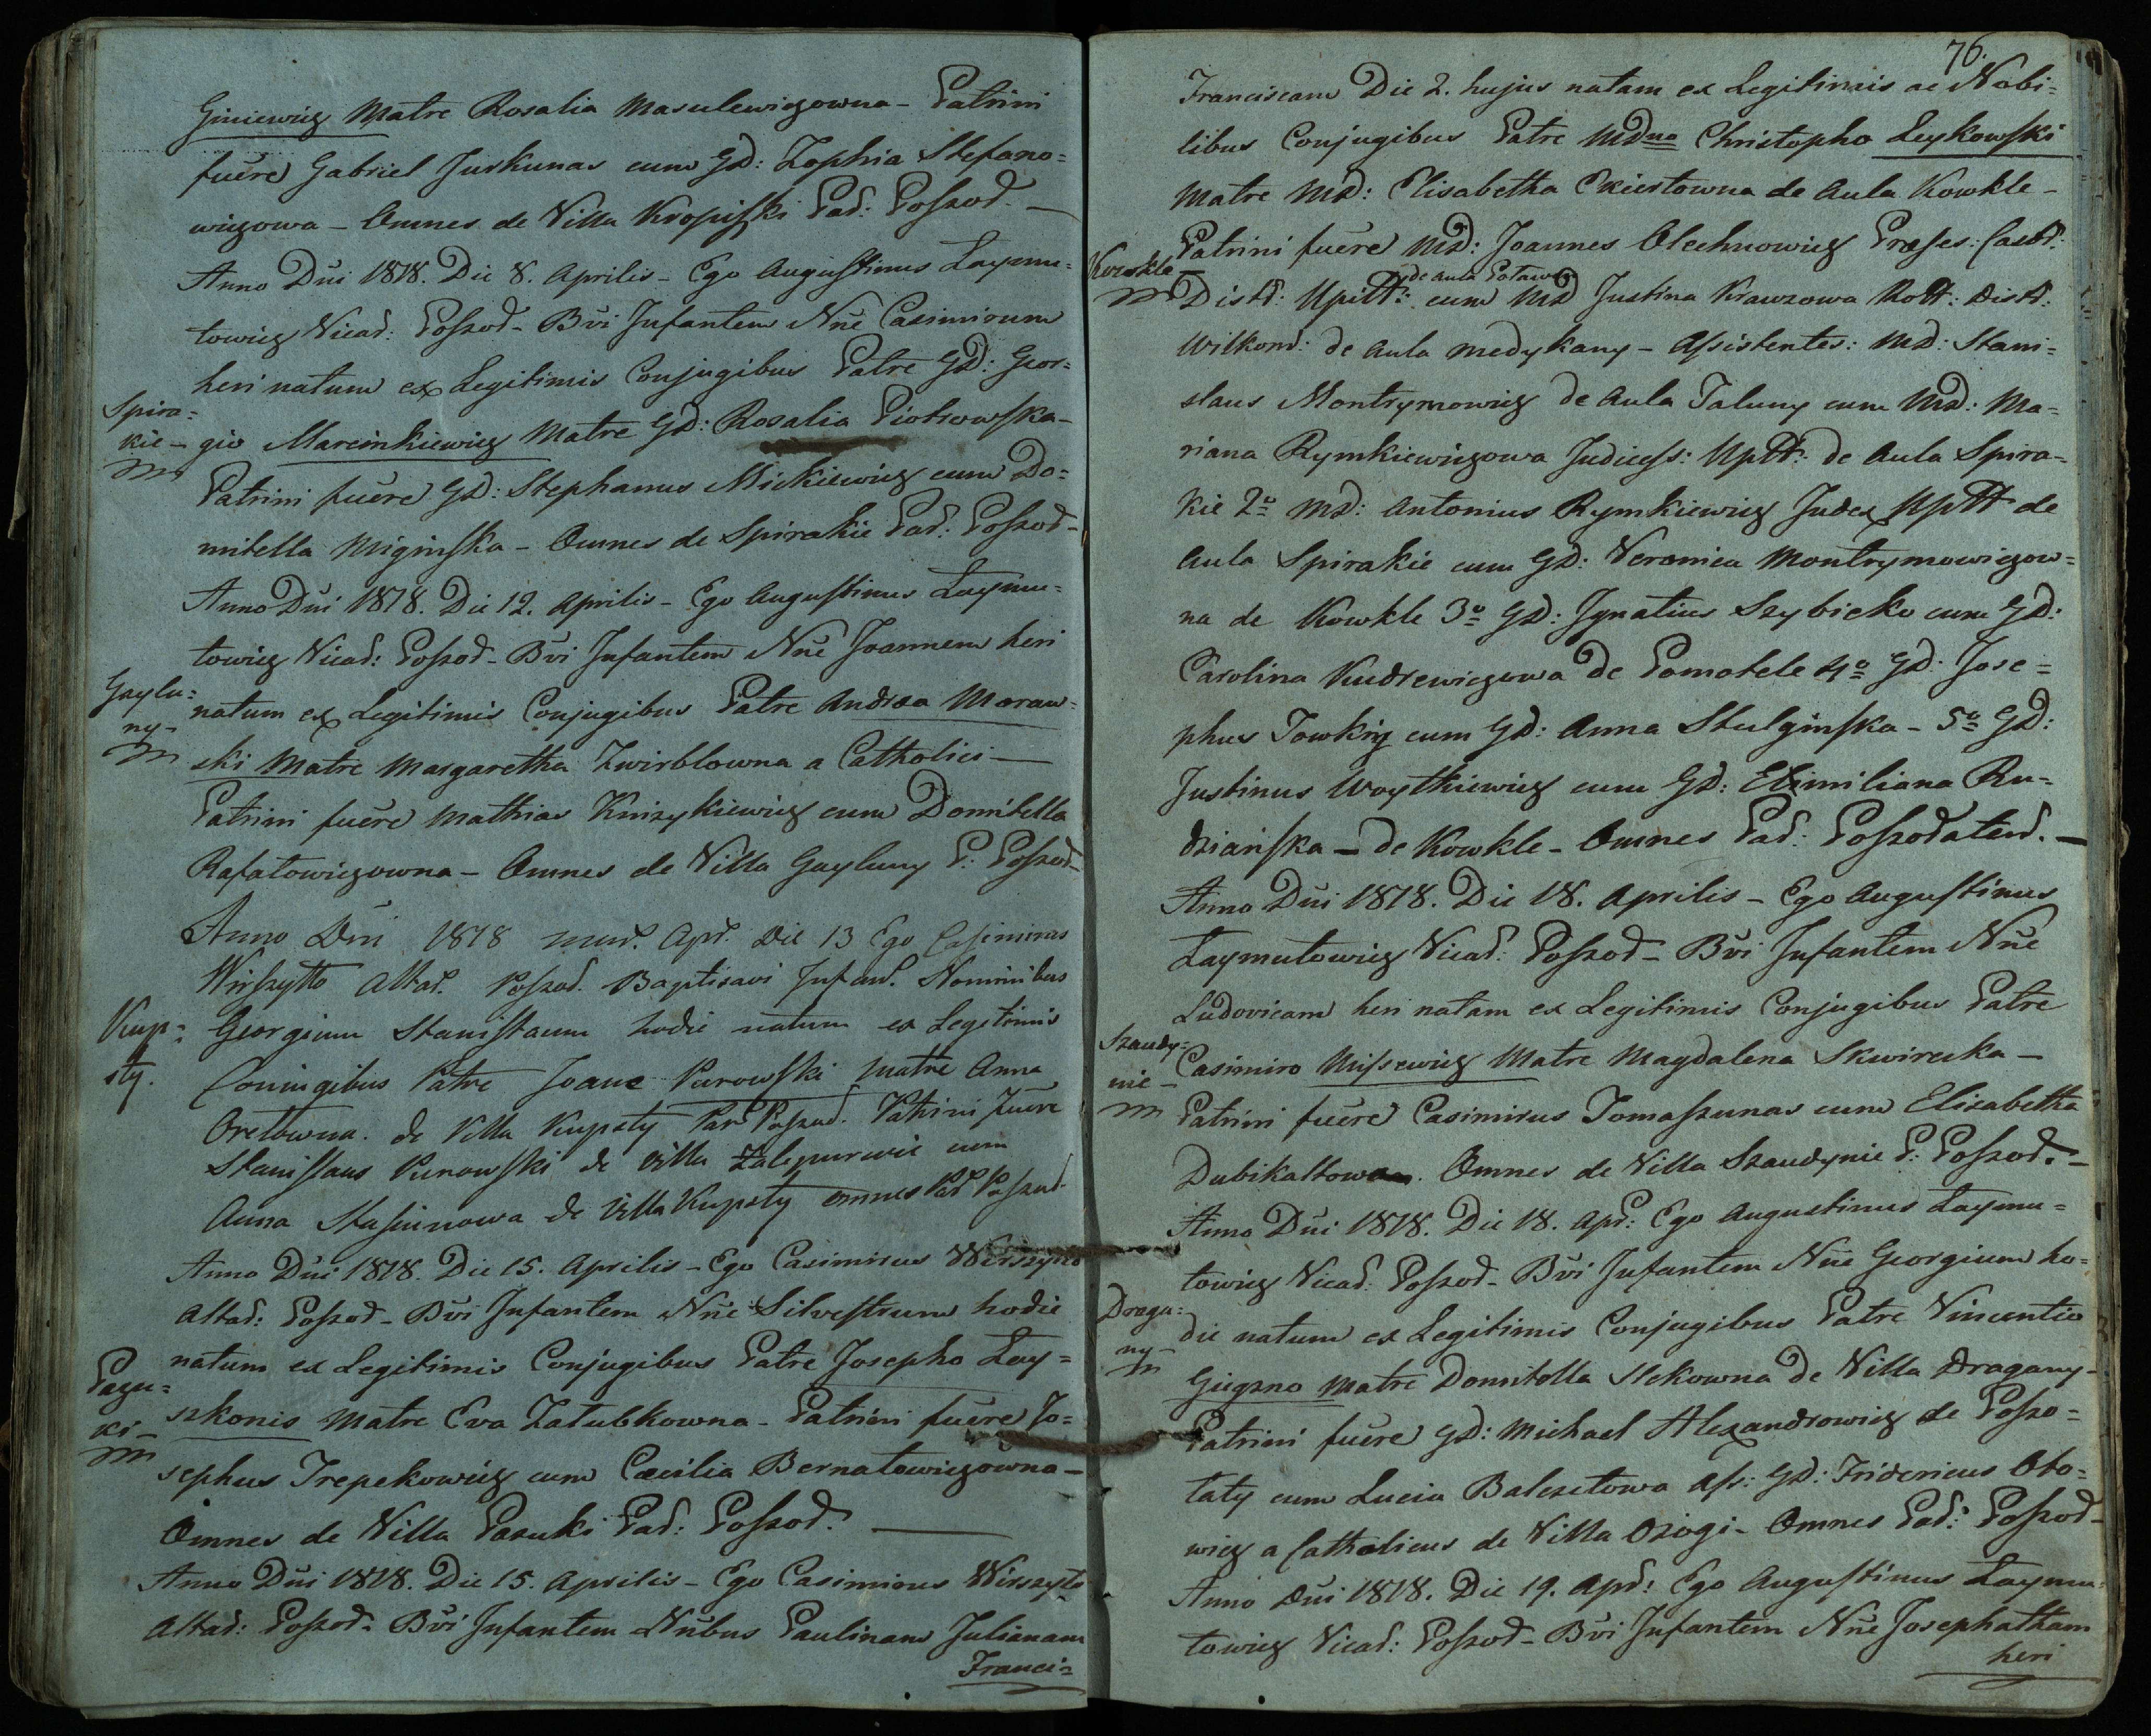 Giniewicz Matre Rosalia Masulewiczowna - Patrini
fuere Gabriel Juskunas cum GD: Zophia Stefano=
wiczowa - Omnes de Villa Kropiszki Par: Poszod. -
Anno Dni 1818. Die 8. Aprilis - Ego Augustinus Laymu=
towicz Vicar: Poszod - Bvi Infantem Nne Casimirum
heri natum ex Legitimis Conjugibus Patre GD: Geor=
Spira=
kie - gio Marcinkiewicz Matre GD: Rosalia Piotrowska -
Patrini fuere GD: Stephanus Mickiewicz cum Do=
mitella Miginska - Omnes de Spirakie Par: Poszod -
Anno Dni 1818. Die 12. Aprilis - Ego Augustinus Laymu=
towicz Vicar: Poszod - Bvi Infantem Nne Joannem heri
Gaylu=
ny - natum ex Legitimis Conjugibus Patre Andrea Moraw=
ski Matre Margaretha Zwirblowna a Catholici -
Patrini fuere Mathias Knizykiewicz cum Domitella
Rafalowiczowna - Omnes de Villa Gayluny P: Poszod -
Anno Dni 1818 Apr. Die 13 Ego Casimirus
Wirszytto Altar. Poszod. Baptisavi Infan. Nominibus
Kup=
sty. Georgium Stanislaum hodie natum ex Legitimis
Coniugibus Patre Joane Purowski Matre Anna
Orelowna. de Villa Kupsty Par Poszod. Patrini fuere
Stanislaus Purowski de Villa Zalepurwie cum
Anna Stasiunowa de Villa Kupsty omnes Par Poszod.
Anno Dni 1818. Die 15. Aprilis - Ego Casimirus Wirszyto
Altar: Poszod - Bvi Infantem Nne Silvestrum hodie
natum ex Legitimis Conjugibus Patre Josepho Lay=
Pazu=
ki - szkonis Matre Eva Zatubkowna - Patrini fuere Jo=
sephus Trepekowicz cum Cæcilia Bernatowiczowna -
Omnes de Villa Pazuki Par: Poszod. -
Anno Dni 1818. Die 15. Aprilis - Ego Casimirus Wirszyto
Altar: Poszod - Bvi Infantem Nnbus Paulinam Julianam
Franci=
76.
Franciscam Die 2. hujus natam ex Legitimis ac Nobi=
libus Conjugibus Patre MDno Christopho Leykowski
Matre MD: Elisabetha Ekiertowna de Aula Kowkle -
Patrini fuere MD: Joannes Olechnowicz Præses:
de Aula Potawen
Kowkle - Distr: Upitt: cum MD Justina Krawzowa Rott: Distr:
Wilkom: de Aula Medykany - Assistentes: MD: Stani=
slaus Montrymowicz de Aula Taluny cum MD: Ma=
riana Rymkiewiczowa Judicess: Uptt: de Aula Spira=
kie 2o MD: Antonius Rymkiewicz Judex Uptt de
Aula Spirakie cum GD: Veronica Montrymowiczow=
na de Kowkle 3o GD: Ignatius Szybicko cum GD:
Carolina Kudrewiczowa de Pomotele 4o GD: Jose=
phus Towkin cum GD: Anna Stulginska - 5o GD:
Justinus Woytkiewicz cum GD: Elimiliana Ru=
dzianska - de Kowkle - Omnes Par: Poszodaten. -
Anno Dni 1818. Die 18. Aprilis - Ego Augustinus
Laymutowicz Vicar: Poszod - Bvi Infantem Nne
Ludovicam heri natam ex Legitimis Conjugibus Patre
Szaudy=
nie - Casimiro Missewicz Matre Magdalena Skwirecka -
Patrini fuere Casimirus Tomaszunas cum Elisabetha
Dubikaltowa. Omnes de Villa Szaudynie P: Poszod. -
Anno Dni 1818. Die 18. Apr: Ego Augustinus Laymu=
towicz Vicar: Poszod - Bvi Infantem Nne Georgium ho=
Draga=
ny - die natum ex Legitimis Conjugibus Patre Vincentio
Giegzno Matre Domitella Stekowna de Villa Dragany -
Patrini fuere GD: Michael Alexandrowicz de Poszo=
taty cum Lucia Balczetowa Ass: GD: Fridericus Obo=
wicz a Catholicus de Villa Oziogi - Omnes Par: Poszod -
Anno Dni 1818. Die 19. Apr: Ego Augustinus Laymu=
towicz Vicar: Poszod - Bvi Infantem Nne Josephatham
heri